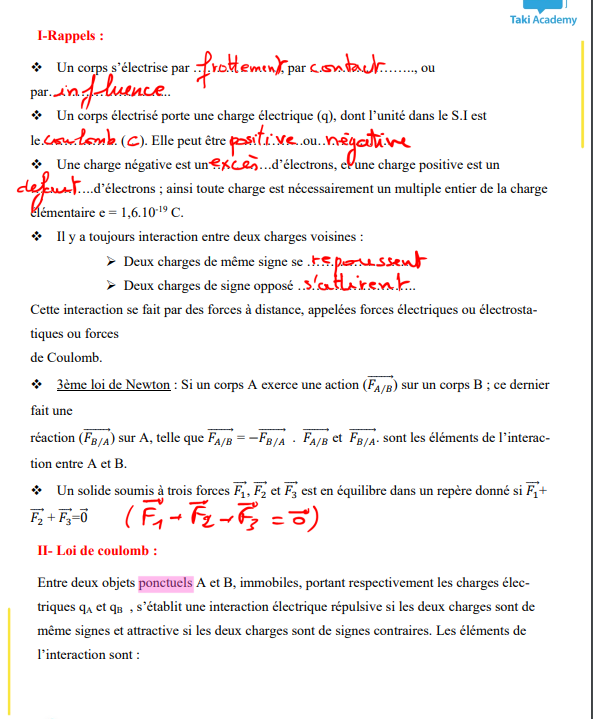 Taki Academy
I-Rappels :
❖ Un corps s'électrise par ..frottement, par contact........, ou
par..influence..
❖ Un corps électrisé porte une charge électrique (q), dont l'unité dans le S.I est
le.coulomb. (C). Elle peut être positive..ou..négative
❖ Une charge négative est un excès...d'électrons, et une charge positive est un
defaut....d'électrons ; ainsi toute charge est nécessairement un multiple entier de la charge
élémentaire e = 1,6.10⁻¹⁹ C.
❖ Il y a toujours interaction entre deux charges voisines :
➢ Deux charges de même signe se ..repoussent
➢ Deux charges de signe opposé ..s'attirent...
Cette interaction se fait par des forces à distance, appelées forces électriques ou électrosta-
tiques ou forces
de Coulomb.
❖ 3ème loi de Newton : Si un corps A exerce une action (F⃗A/B) sur un corps B ; ce dernier
fait une
réaction (F⃗B/A) sur A, telle que F⃗A/B = −F⃗B/A . F⃗A/B et F⃗B/A. sont les éléments de l'interac-
tion entre A et B.
❖ Un solide soumis à trois forces F⃗1, F⃗2 et F⃗3 est en équilibre dans un repère donné si F⃗1+
F⃗2 + F⃗3=0⃗ (F⃗1 + F⃗2 + F⃗3 = 0⃗)
II- Loi de coulomb :
Entre deux objets ponctuels A et B, immobiles, portant respectivement les charges élec-
triques qA et qB , s'établit une interaction électrique répulsive si les deux charges sont de
même signes et attractive si les deux charges sont de signes contraires. Les éléments de
l'interaction sont :